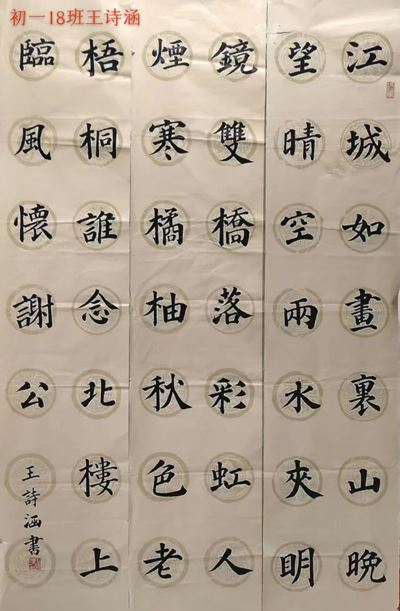 初一18班王诗涵
江城如畫裏山晚
望晴空兩水夾明
鏡雙橋落彩虹人
煙寒橘柚秋色老
梧桐誰念北樓上
臨風懷謝公
王詩涵書